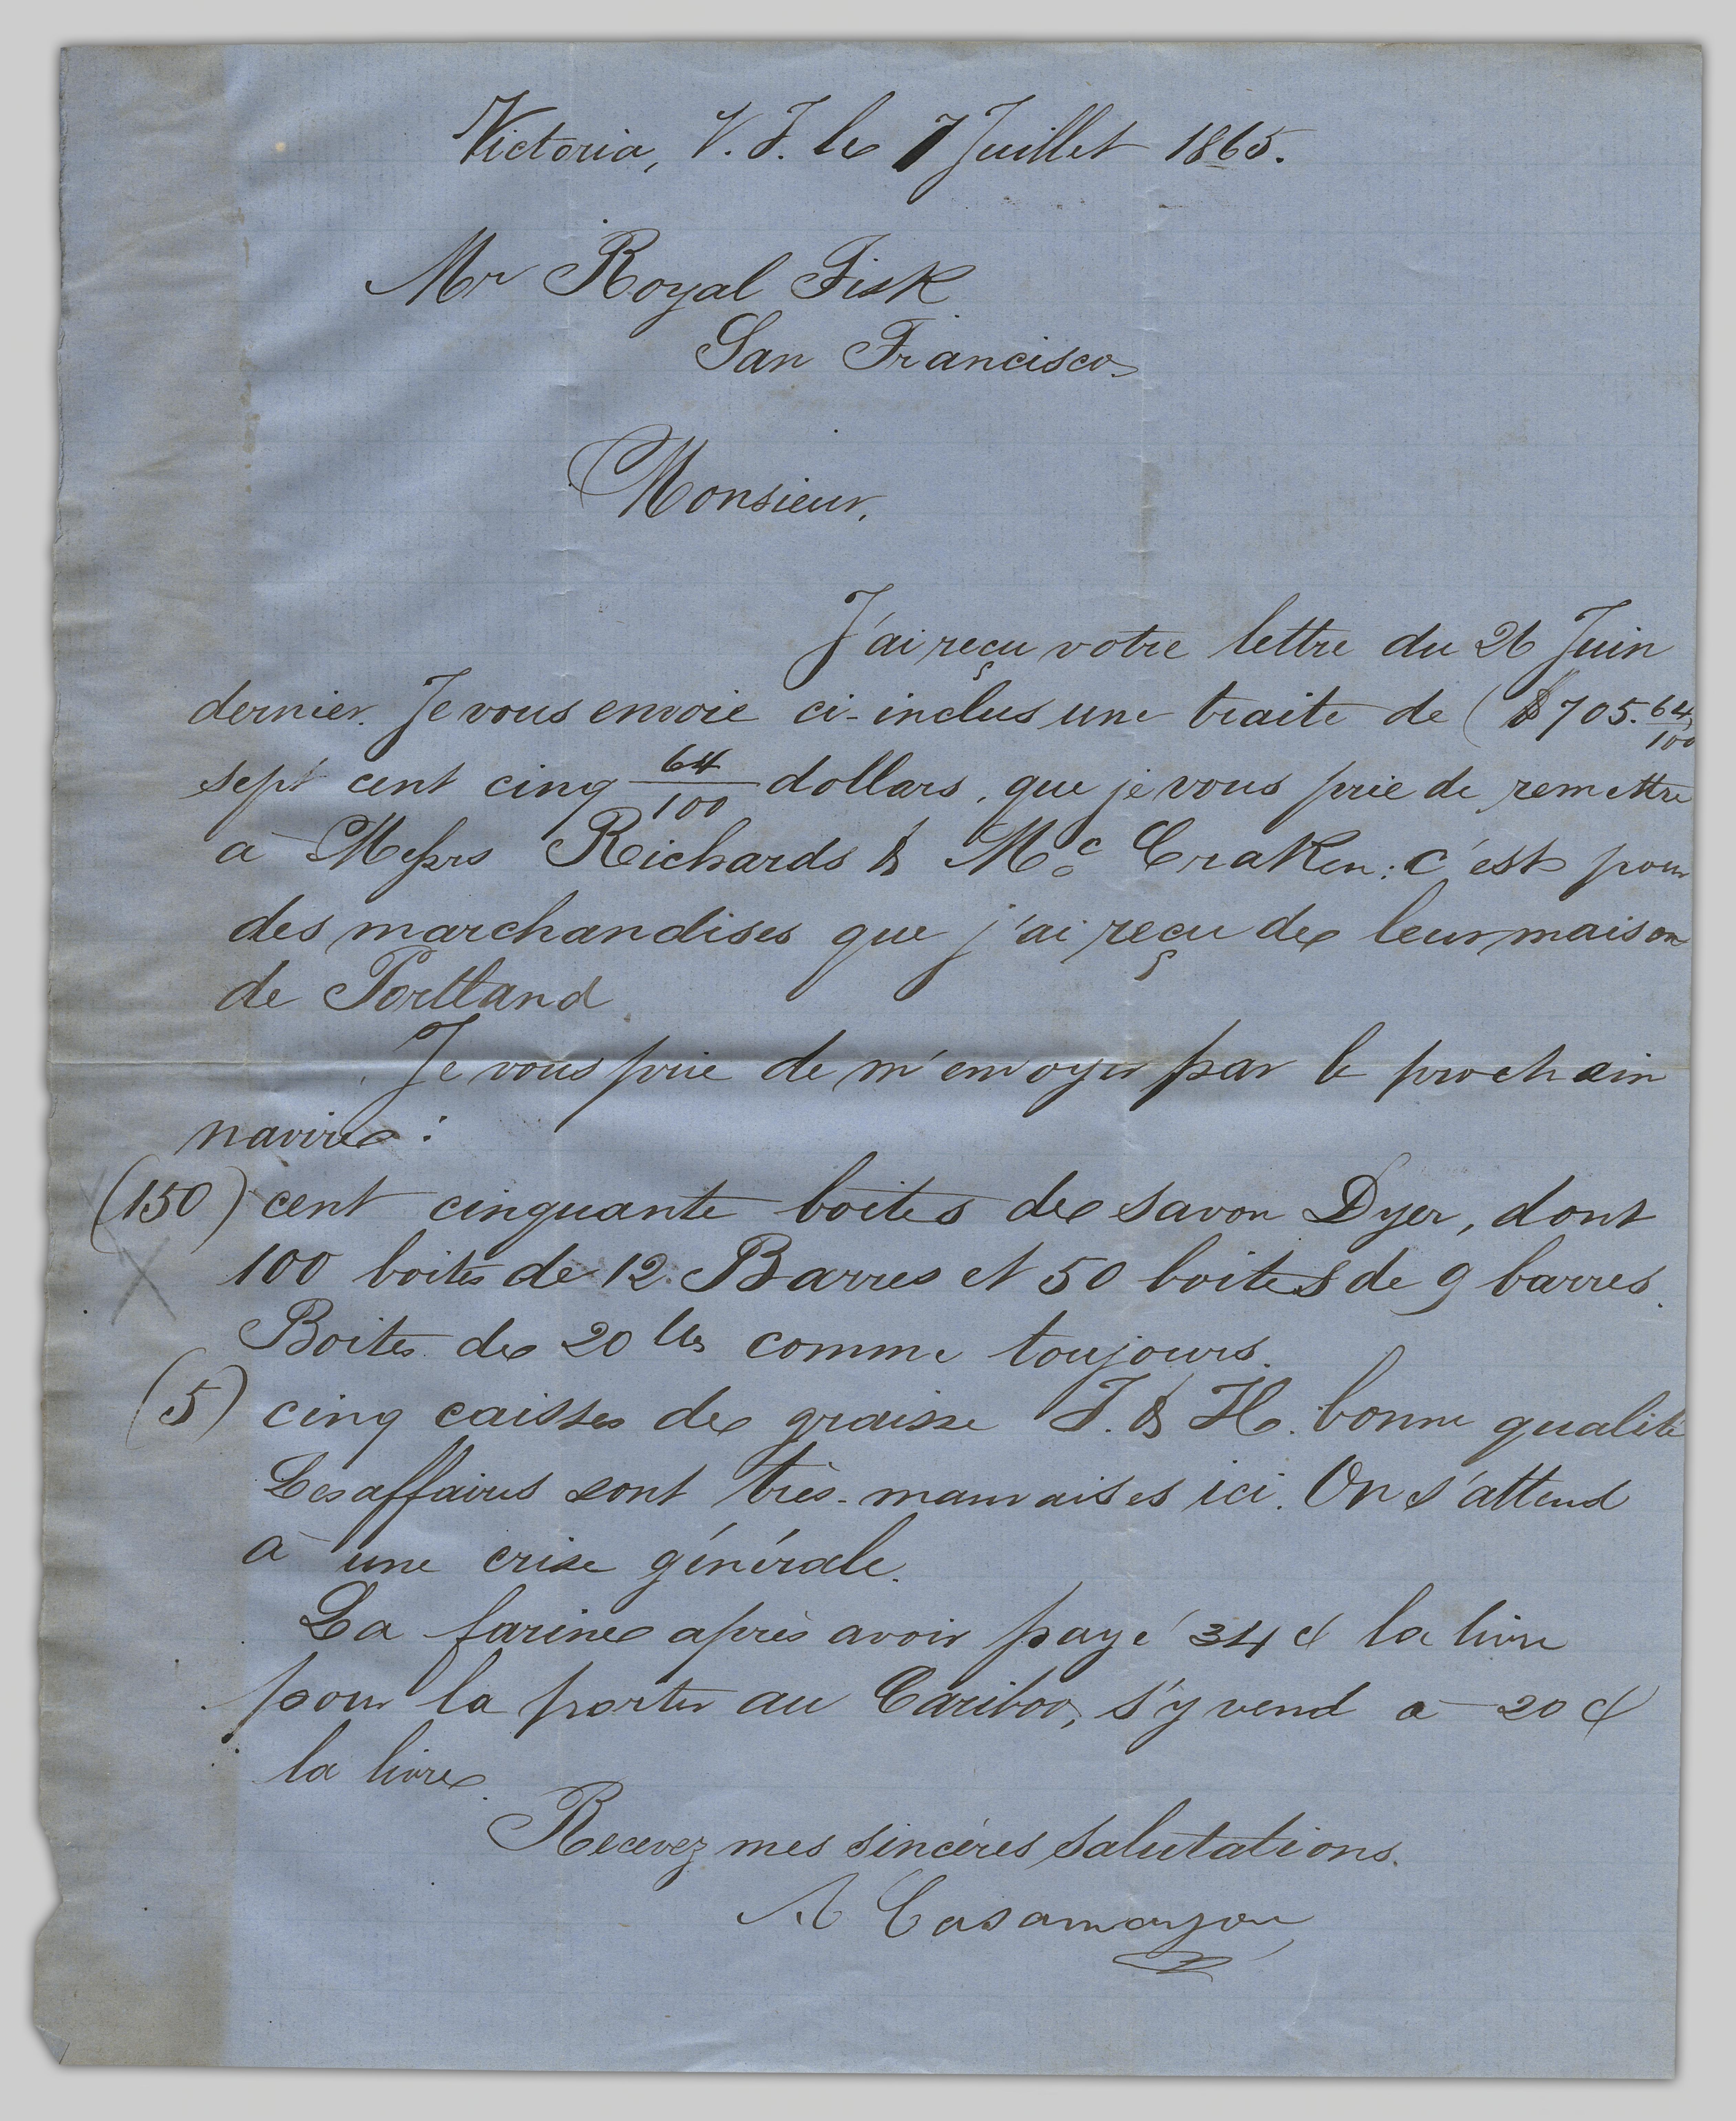 Victoria, V. I. le 7 Juillet 1865.
Mr Royal Fisk
San Francisco
Monsieur,
J'ai reçu votre lettre du 26 Juin
dernier. Je vous envoie ci-inclus une traite de ($705.64/100)
sept cent cinq 64/100 dollars, que je vous prie de remettre
à Messrs Richards & Mc Craken: c'est pour
des marchandises que j'ai reçu de leur maison
de Portland
Je vous prie de m'envoyer par le prochain
navire:
(150) cent cinquante boites de savon Dyer, dont
100 boites de 12 Barres et 50 boites de 9 barres.
Boites de 20 lbs comme toujours.
(5) cinq caisses de graisse J. & H. bonne qualité
Les affaires sont très-mauvaises ici. On s'attend
à une crise générale.
La farine après avoir payé 34 ¢ la livre
pour la porter au Cariboo, s'y vend à 20 ¢
la livre.
Recevez mes sincères salutations.
A Casamayou